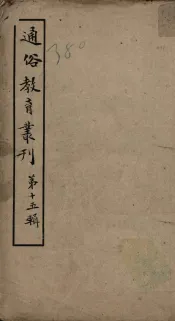 通俗教育叢刊 第十五輯
380